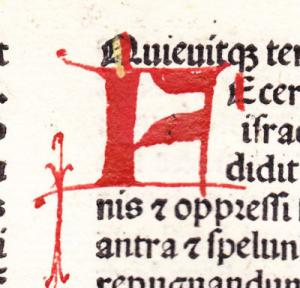 Quieuitqꝫ ter
F Ecer
iſrae
didit
nis ⁊ oppreſſi
antra ⁊ ſpelun
repugnandum